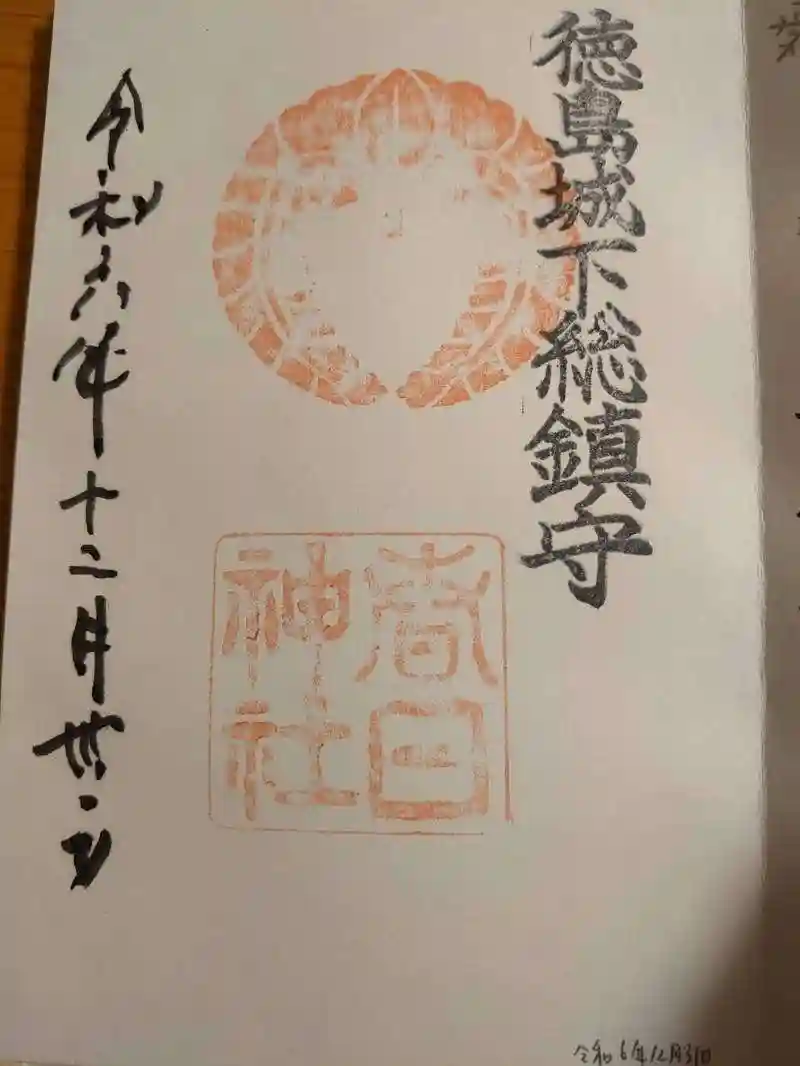 徳島城下総鎮守
春日
神社
令和六年十二月丗一日
令和6年12月31日